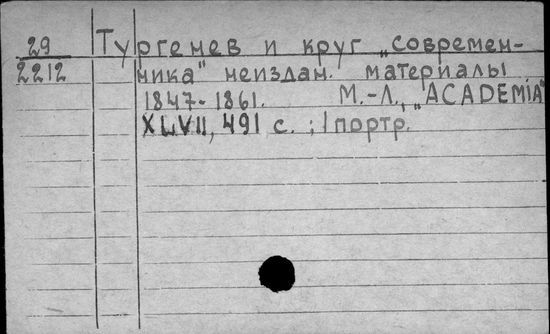 29 Тургенев и круг „современ-
2212 ника" неиздан. материалы
1847-1861. М.-Л., „ACADEMIA"
XLVII, 491 с. ; 1 портр.